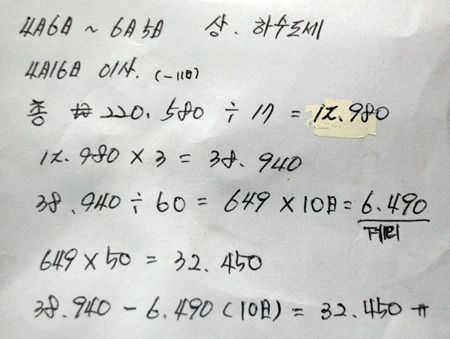 4月6日 ~ 6月5日 상.하수도세
4月16日 이사. (-11日)
총 ₩220.580 ÷ 17 = 12.980
12.980 × 3 = 38.940
38.940 ÷ 60 = 649 × 10日 = 6.490
제외
649 × 50 = 32.450
38.940 - 6.490 (10日) = 32.450 #